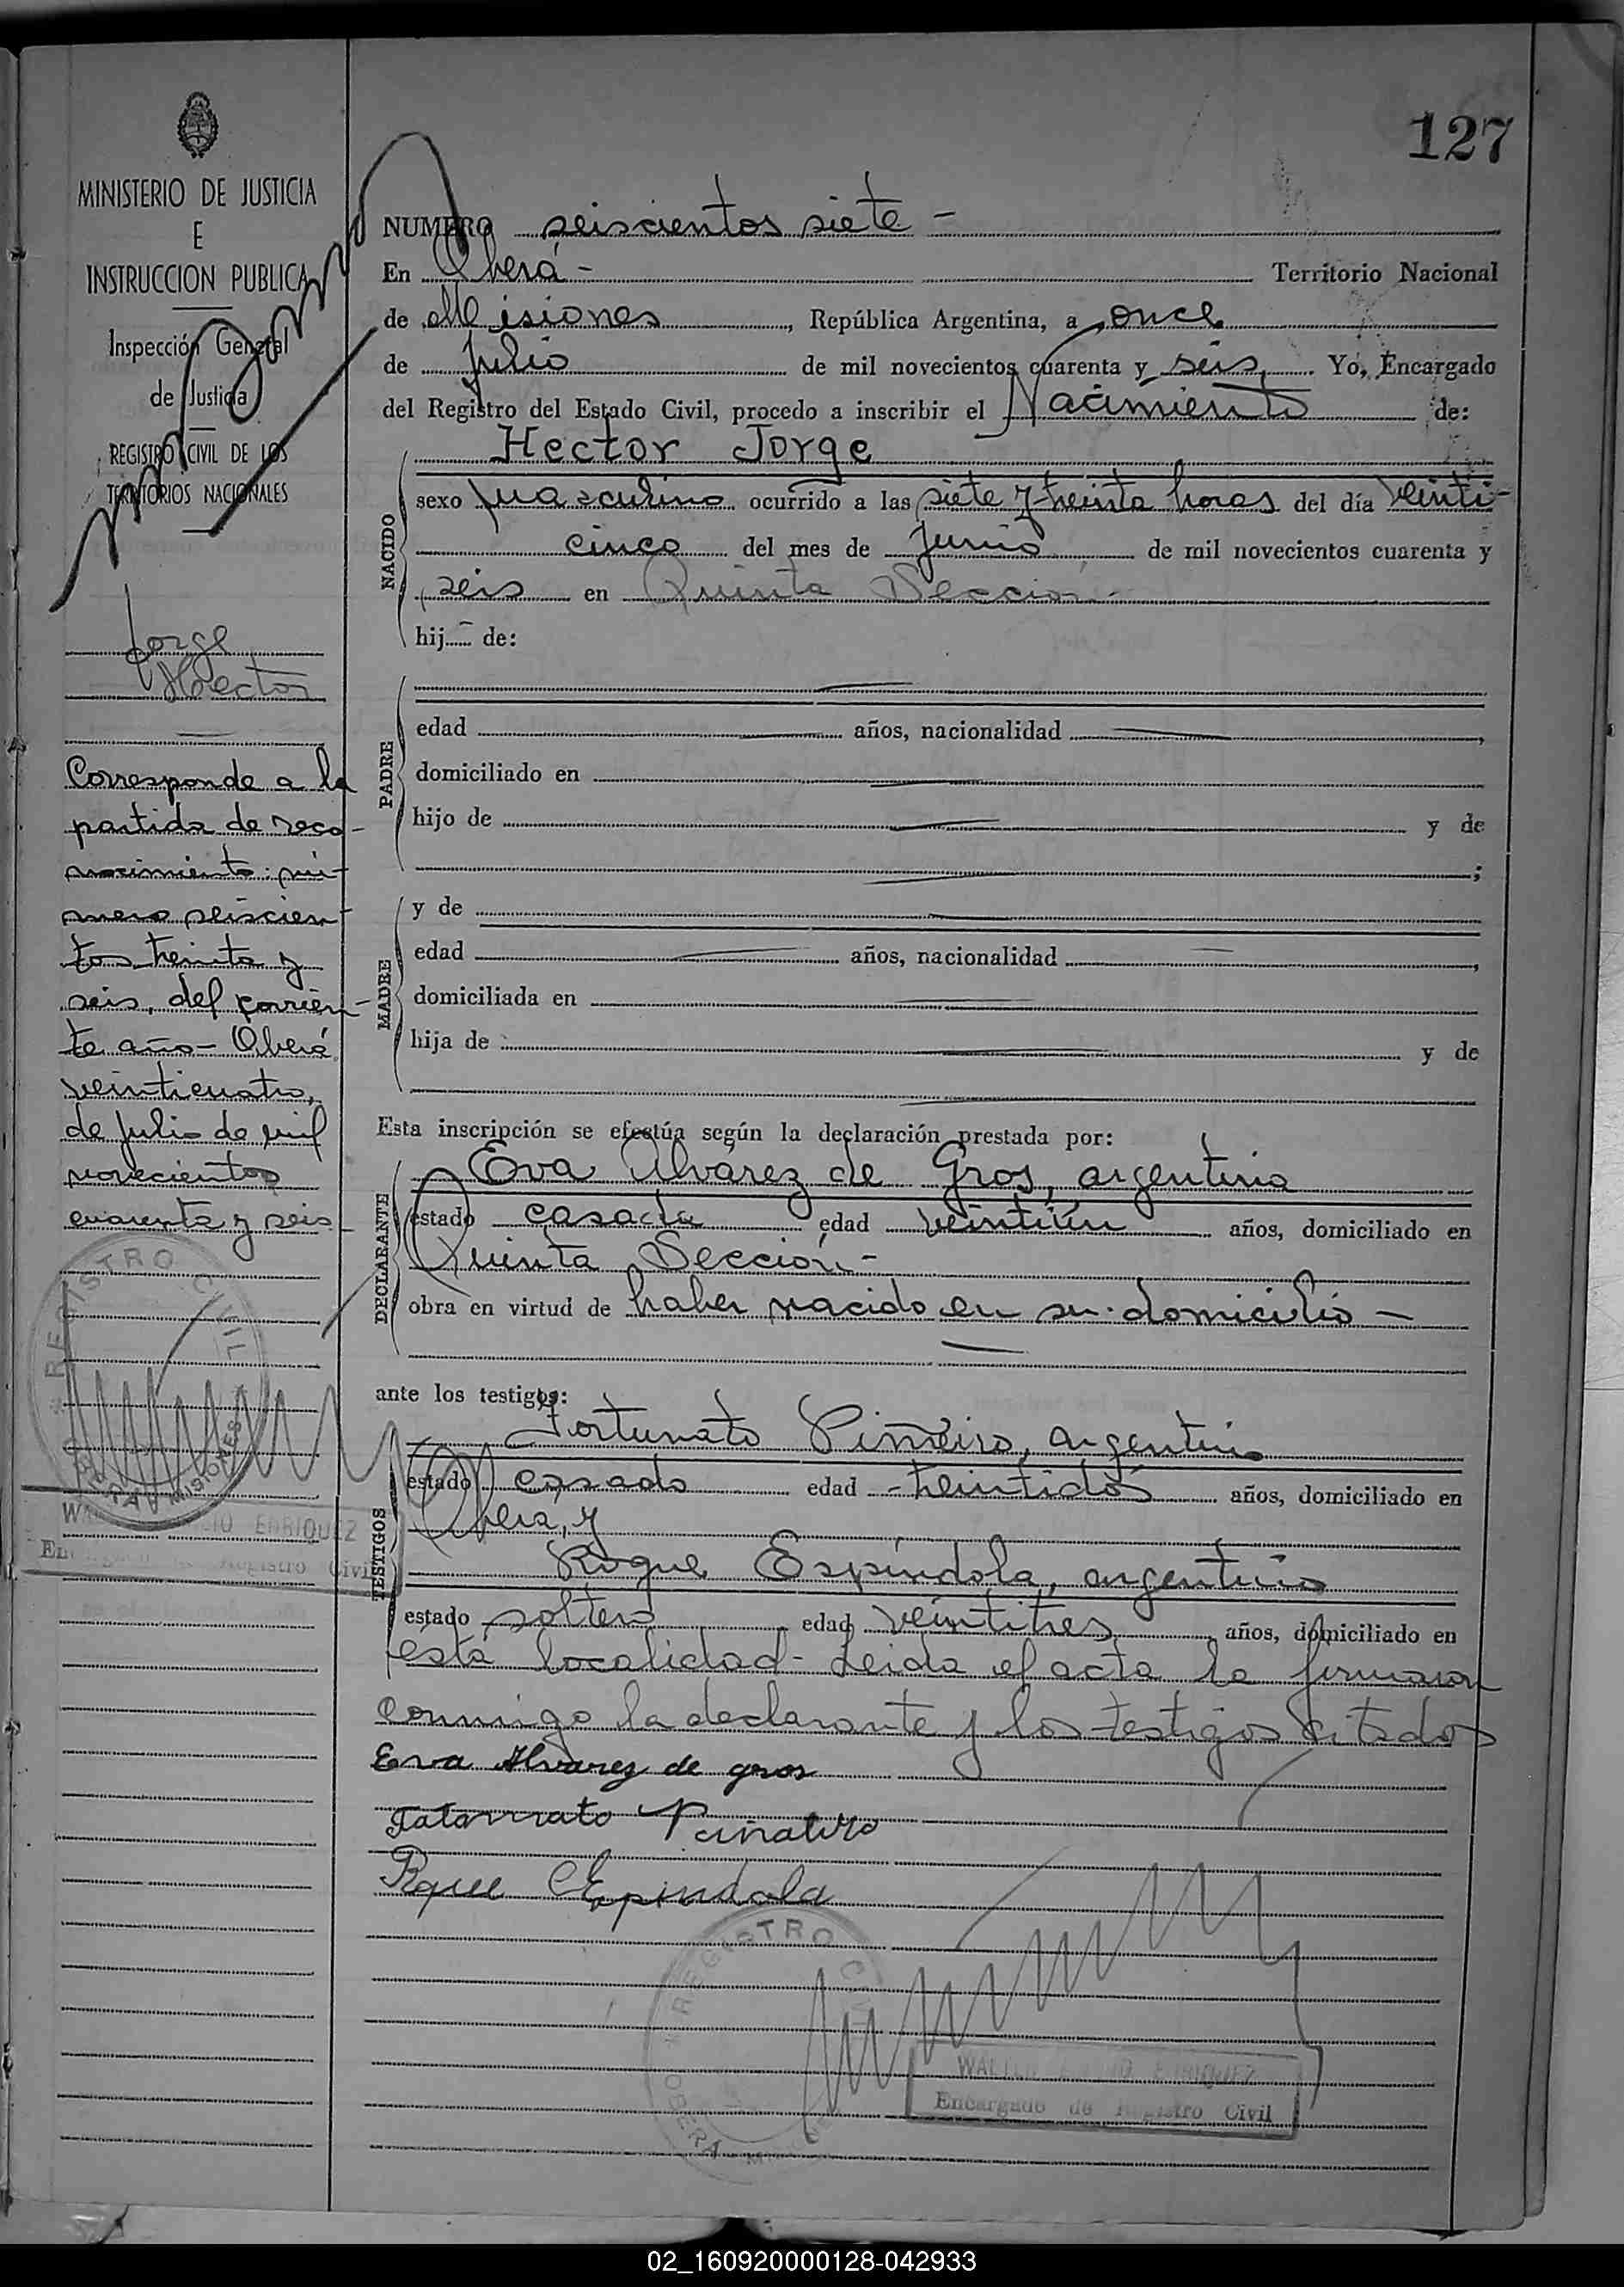 127
MINISTERIO DE JUSTICIA
E
INSTRUCCION PUBLICA
Inspección General
de Justicia
REGISTRO CIVIL DE LOS
TERRITORIOS NACIONALES
Jorge
Hector
Corresponde a la
partida de reco-
nocimiento: nú-
mero seiscien-
tos treinta y
seis, del corrien-
te año - Oberá
veinticuatro,
de Julio de mil
novecientos
cuarenta y seis
REGISTRO CIVIL
OBERA MISIONES
ENRIQUEZ
Registro Civil
NUMERO seiscientos siete -
En Oberá - Territorio Nacional
de Misiones, República Argentina, a once
de Julio de mil novecientos cuarenta y seis, Yo, Encargado
del Registro del Estado Civil, procedo a inscribir el Nacimiento de:
NACIDO
Hector Jorge
sexo masculino ocurrido a las siete y treinta horas del día veinti-
cinco del mes de Junio de mil novecientos cuarenta y
seis en Quinta Sección -
hij... de:
PADRE
edad años, nacionalidad
domiciliado en
hijo de y de
;
MADRE
y de
edad años, nacionalidad
domiciliada en
hija de y de
Esta inscripción se efectúa según la declaración prestada por:
DECLARANTE
Eva Alvarez de Gros, argentina
estado casada edad veintiún años, domiciliado en
Quinta Sección -
obra en virtud de haber nacido en su domicilio -
ante los testigos:
TESTIGOS
Fortunato Piñeiro, argentino
estado casado edad treintidós años, domiciliado en
Oberá, y
Roque Espíndola, argentino
estado soltero edad veintitres años, domiciliado en
esta localidad - Leida el acta la firmaron
conmigo la declarante y los testigos citados
Eva Alvarez de gros
Roque Espindola
REGISTRO CIVIL
OBERA
WALTER ENRIQUEZ
Encargado de Registro Civil
02_160920000128-042933